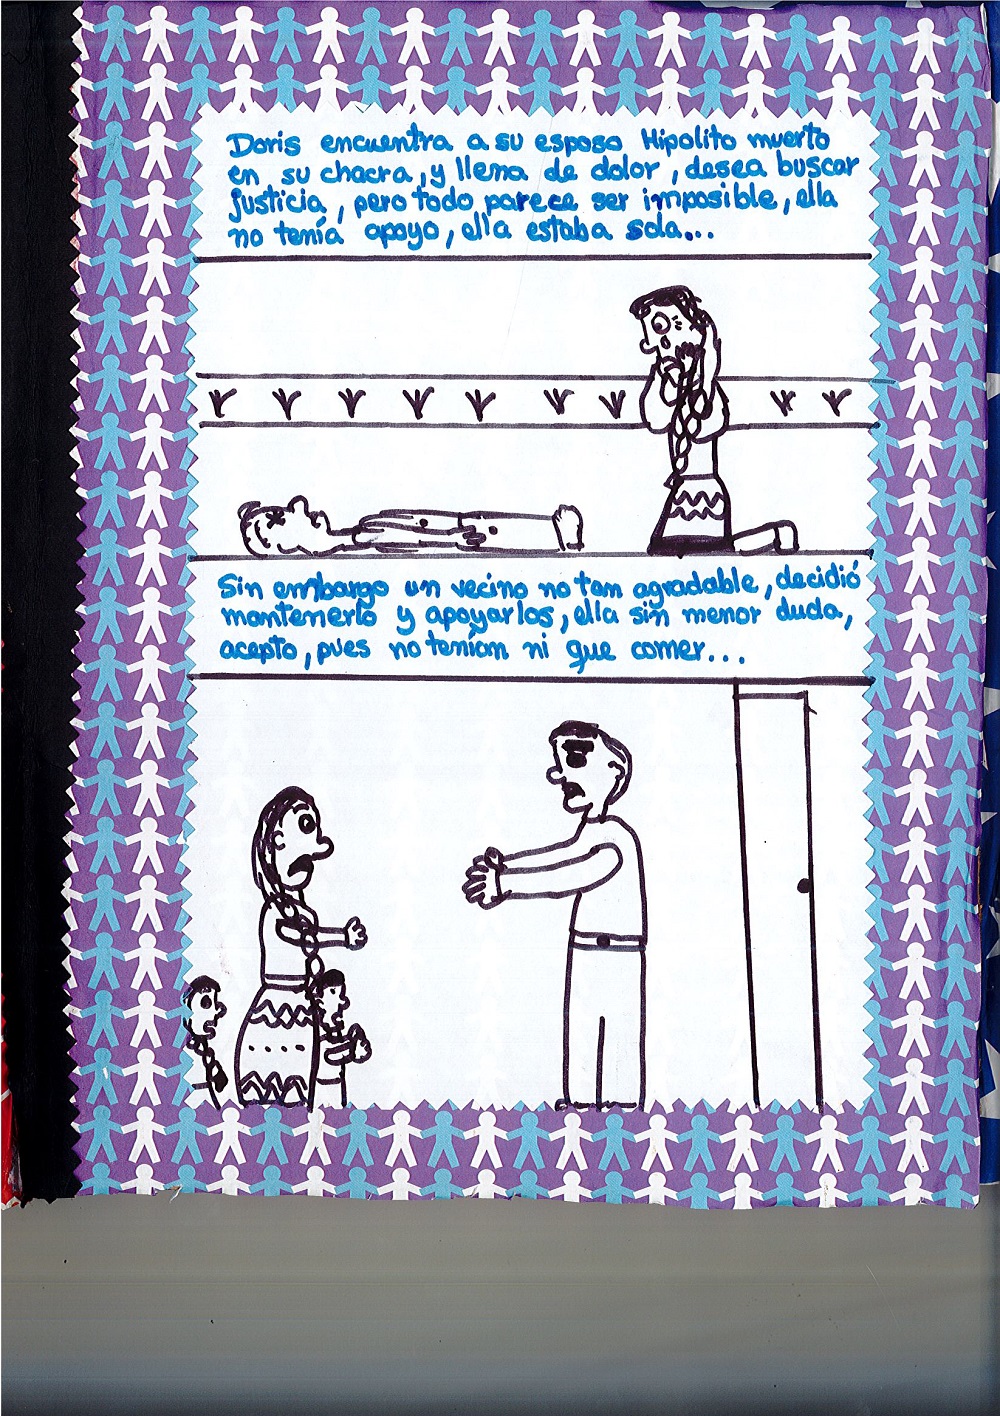 Doris encuentra a su esposo Hipolito muerto
en su chacra, y llena de dolor, desea buscar
justicia, pero todo parece ser imposible, ella
no tenía apoyo, ella estaba sola...
Sin embargo un vecino no tan agradable, decidió
mantenerlo y apoyarlos, ella sin menor duda,
acepto, pues no tenían ni que comer...